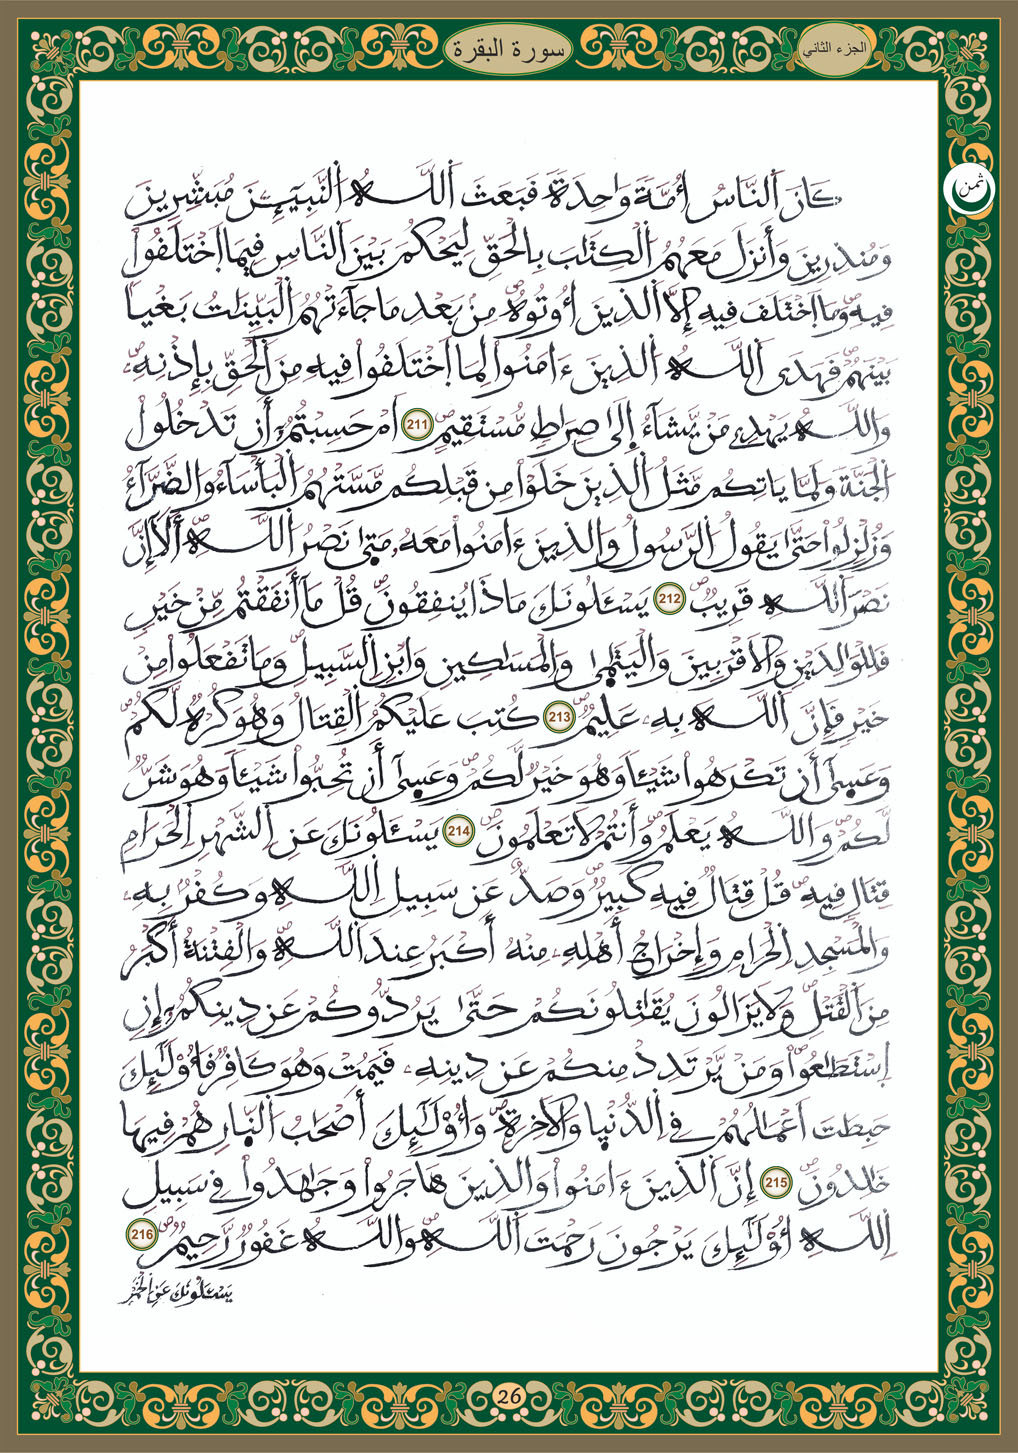 الجزء الثاني
سورة البقرة
ثمن
كَانَ اَلنَّاسُ أُمَّةٗ وَٰحِدَةٗ فَبَعَثَ اَللَّهُ اُلنَّبِيٓـِٕينَ مُبَشِّرِينَ
وَمُنذِرِينَ وَأَنزَلَ مَعَهُمُ اُلْكِتَٰبَ بِالْحَقِّ لِيَحْكُمَ بَيْنَ اَلنَّاسِ فِيمَا اَخْتَلَفُواْ
فِيهِۖ وَمَا اَخْتَلَفَ فِيهِ إِلَّا اَلذِينَ أُوتُوهُ مِنۢ بَعْدِ مَا جَآءَتْهُمُ اُلْبَيِّنَٰتُ بَغْياَۢ
بَيْنَهُمْۖ فَهَدَى اَللَّهُ اُلذِينَ ءَامَنُواْ لِمَا اَخْتَلَفُواْ فِيهِ مِنَ اَلْحَقِّ بِإِذْنِهِۦۖ
وَاللَّهُ يَهْدِے مَنْ يَّشَآءُ اِ۪لَىٰ صِرَٰطٖ مُّسْتَقِيمٍۖ 211 اَمْ حَسِبْتُمُۥٓ أَن تَدْخُلُواْ
اُلْجَنَّةَ وَلَمَّا يَاتِكُم مَّثَلُ اُلذِينَ خَلَوْاْ مِن قَبْلِكُم مَّسَّتْهُمُ اُلْبَأْسَآءُ وَالضَّرَّآءُ
وَزُلْزِلُواْ حَتَّىٰ يَقُولُ اُلرَّسُولُ وَالذِينَ ءَامَنُواْ مَعَهُۥ مَت۪ىٰ نَصْرُ اُللَّهِۖ أَلَآ إِنَّ
نَصْرَ اَللَّهِ قَرِيبٞۖ 212 يَسْـَٔلُونَكَ مَاذَا يُنفِقُونَۖ قُلْ مَآ أَنفَقْتُم مِّنْ خَيْرٖ
فَلِلْوَٰلِدَيْنِ وَالَاقْرَبِينَ وَالْيَتَٰم۪ىٰ وَالْمَسَٰكِينِ وَابْنِ اِلسَّبِيلِۖ وَمَا تَفْعَلُواْ مِنْ
خَيْرٖ فَإِنَّ اَللَّهَ بِهِۦ عَلِيمٞۖ 213 كُتِبَ عَلَيْكُمُ اُلْقِتَالُ وَهُوَ كُرْهٞ لَّكُمْۖ
وَعَس۪ىٰٓ أَن تَكْرَهُواْ شَيْـٔاٗ وَهُوَ خَيْرٞ لَّكُمْۖ وَعَس۪ىٰٓ أَن تُحِبُّواْ شَيْـٔاٗ وَهُوَ شَرّٞ
لَّكُمْۖ وَاللَّهُ يَعْلَمُ وَأَنتُمْ لَا تَعْلَمُونَۖ 214 يَسْـَٔلُونَكَ عَنِ اِلشَّهْرِ اِلْحَرَامِ
قِتَالٖ فِيهِۖ قُلْ قِتَالٞ فِيهِ كَبِيرٞۖ وَصَدٌّ عَن سَبِيلِ اِللَّهِ وَكُفْرُۢ بِهِۦ
وَالْمَسْجِدِ اِلْحَرَامِ وَإِخْرَاجُ أَهْلِهِۦ مِنْهُ أَكْبَرُ عِندَ اَللَّهِۖ وَالْفِتْنَةُ أَكْبَرُ
مِنَ اَلْقَتْلِۖ وَلَا يَزَالُونَ يُقَٰتِلُونَكُمْ حَتَّىٰ يَرُدُّوكُمْ عَن دِينِكُمُۥٓ إِنِ
اِسْتَطَٰعُواْۖ وَمَنْ يَّرْتَدِدْ مِنكُمْ عَن دِينِهِۦ فَيَمُتْ وَهُوَ كَافِرٞ فَأُوْلَٰٓئِكَ
حَبِطَتَ اَعْمَٰلُهُمْ فِے اِلدُّنْيَا وَالَاخِرَةِۖ وَأُوْلَٰٓئِكَ أَصْحَٰبُ اُلنّ۪ارِ هُمْ فِيهَا
خَٰلِدُونَۖ 215 إِنَّ اَلذِينَ ءَامَنُواْ وَالذِينَ هَاجَرُواْ وَجَٰهَدُواْ فِے سَبِيلِ
اِللَّهِ أُوْلَٰٓئِكَ يَرْجُونَ رَحْمَتَ اَللَّهِۖ وَاللَّهُ غَفُورٞ رَّحِيمٞۖ 216
يَسْـَٔلُونَكَ عَنِ اِلْخَمْرِ
26